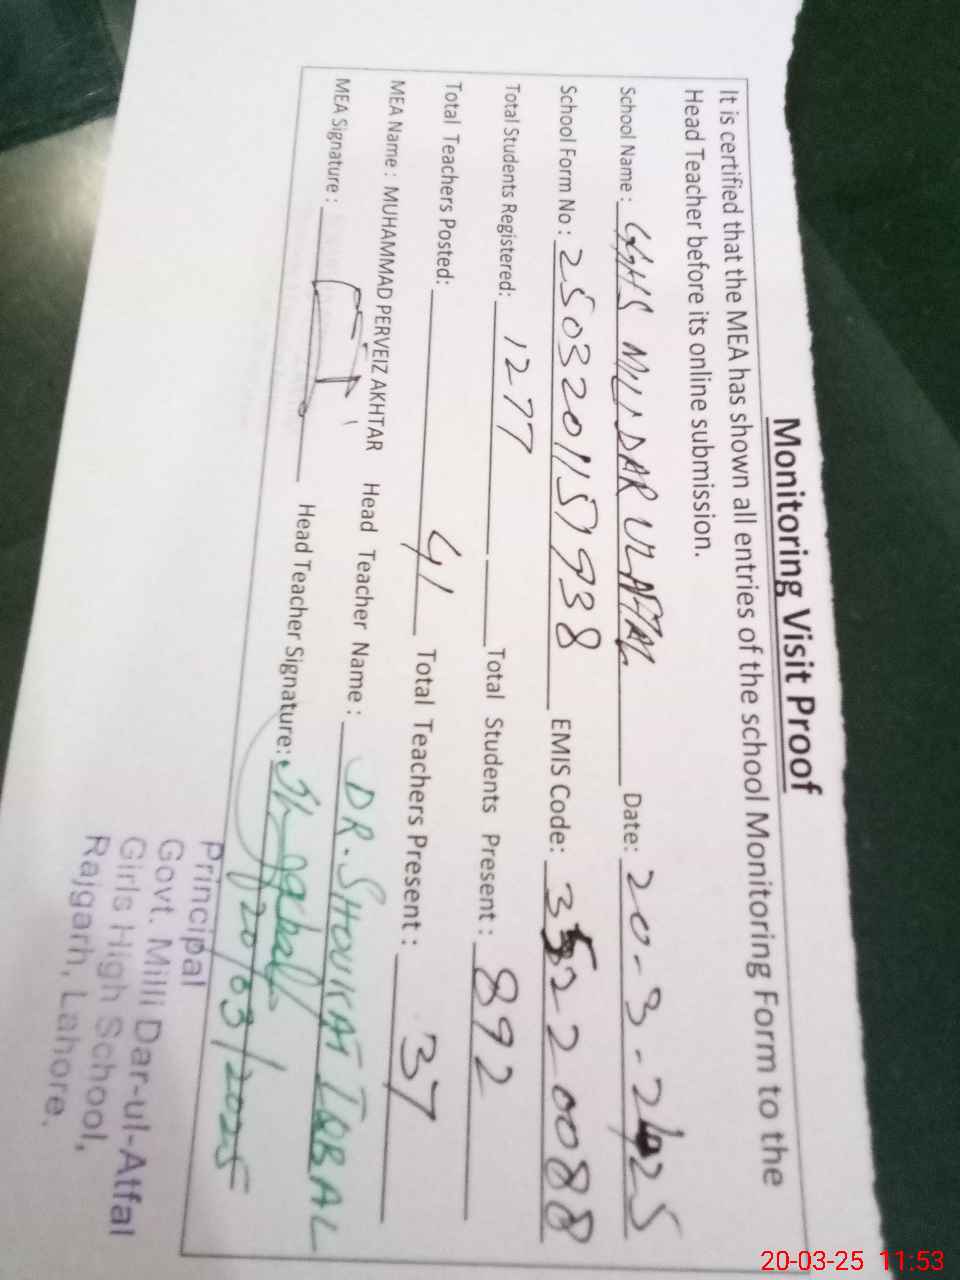 Monitoring Visit Proof
It is certified that the MEA has shown all entries of the school Monitoring Form to the
Head Teacher before its online submission.
School Name : GGHS MILLI DAR UL ATFAL Date: 20-3-2025
School Form No : 2503201151938 EMIS Code: 35220088
Total Students Registered: 1277 Total Students Present : 892
Total Teachers Posted: 41 Total Teachers Present : 37
MEA Name : MUHAMMAD PERVEIZ AKHTAR Head Teacher Name : DR. SHOUKAT IQBAL
MEA Signature : Head Teacher Signature:
20/03/2025
Principal
Govt. Milli Dar-ul-Atfal
Girls High School,
Rajgarh, Lahore.
20-03-25 11:53